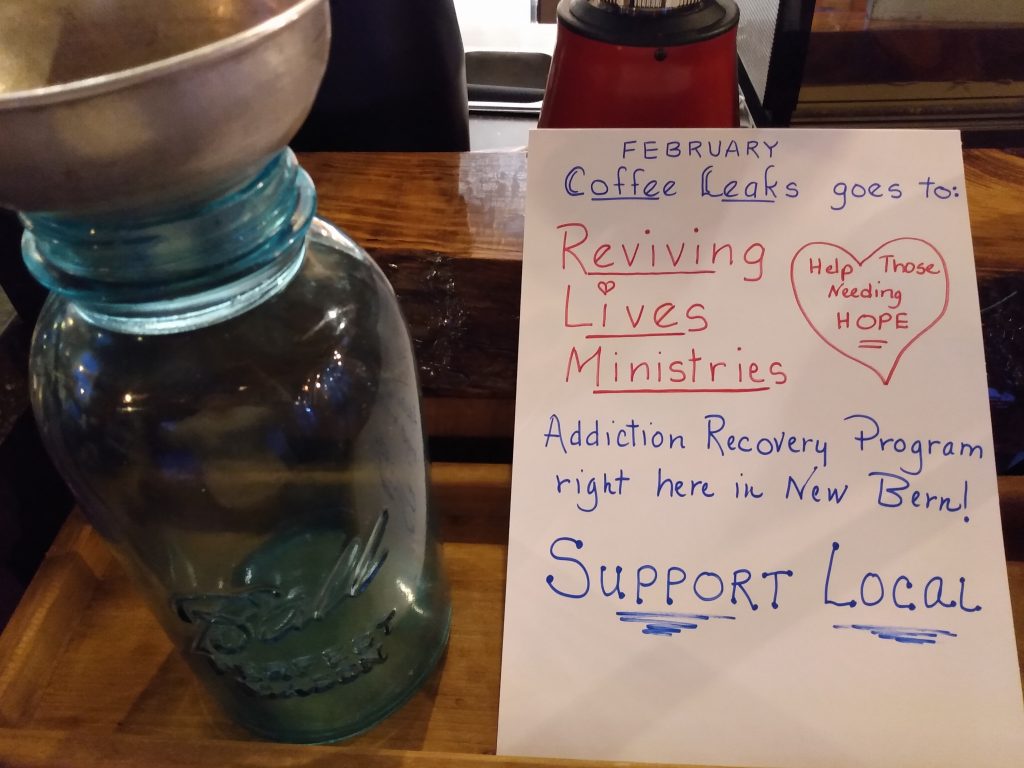 FEBRUARY
Coffee Leaks goes to:
Reviving
Lives
Ministries
Help Those
Needing
HOPE
Addiction Recovery Program
right here in New Bern!
SUPPORT LOCAL
Ball